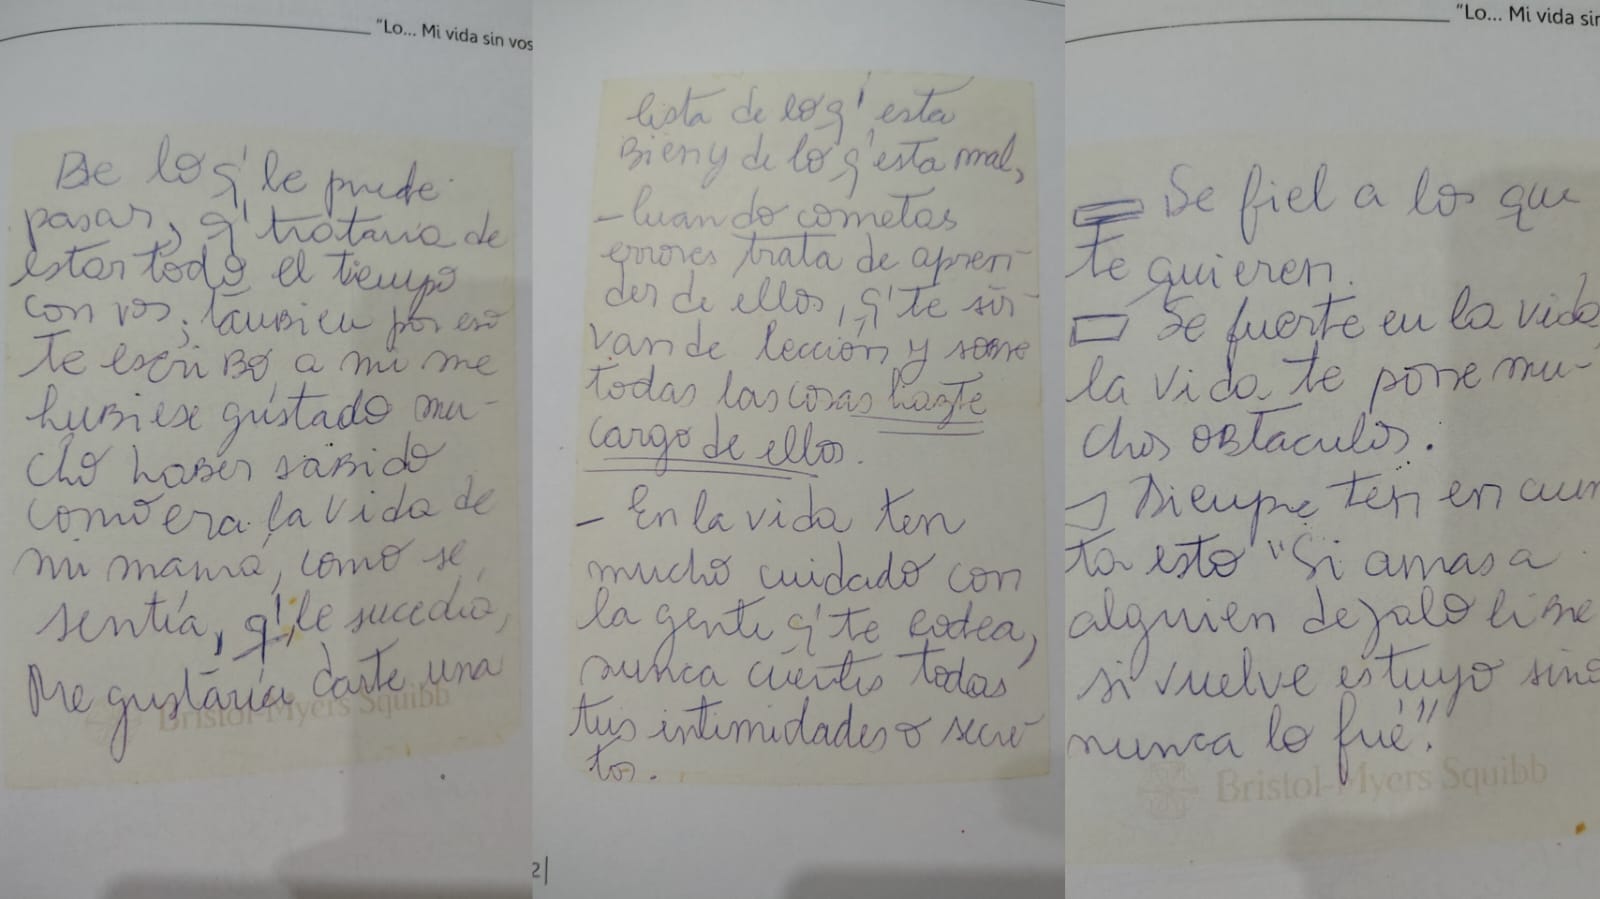 "Lo... Mi vida sin vos
De lo q' le puede
pasar, q' trataria de
estar todo el tiempo
con vos, tambien por eso
te escribo, a mi me
hubiese gustado mu-
cho haber sabido
como era la vida de
mi mamá, como se
sentía, q' le sucedía,
Me gustaría darte una
Bristol-Myers Squibb
lista de lo q' esta
Bien y de lo q' esta mal,
- Cuando cometas
errores trata de apren-
der de ellos, q' te sir-
van de lección, y sobre
todas las cosas hazte
cargo de ellos.
- En la vida ten
mucho cuidado con
la gente q' te rodea,
nunca cuentes todas
tus intimidades o secre-
tos.
2|
"Lo... Mi vida sin
Se fiel a los que
te quieren.
Se fuerte en la vida,
la vida te pone mu-
chos obtaculos.
Siempre ten en cuen
ta esto "Si amas a
alguien dejalo libre
si vuelve es tuyo sino
nunca lo fué".
Bristol-Myers Squibb